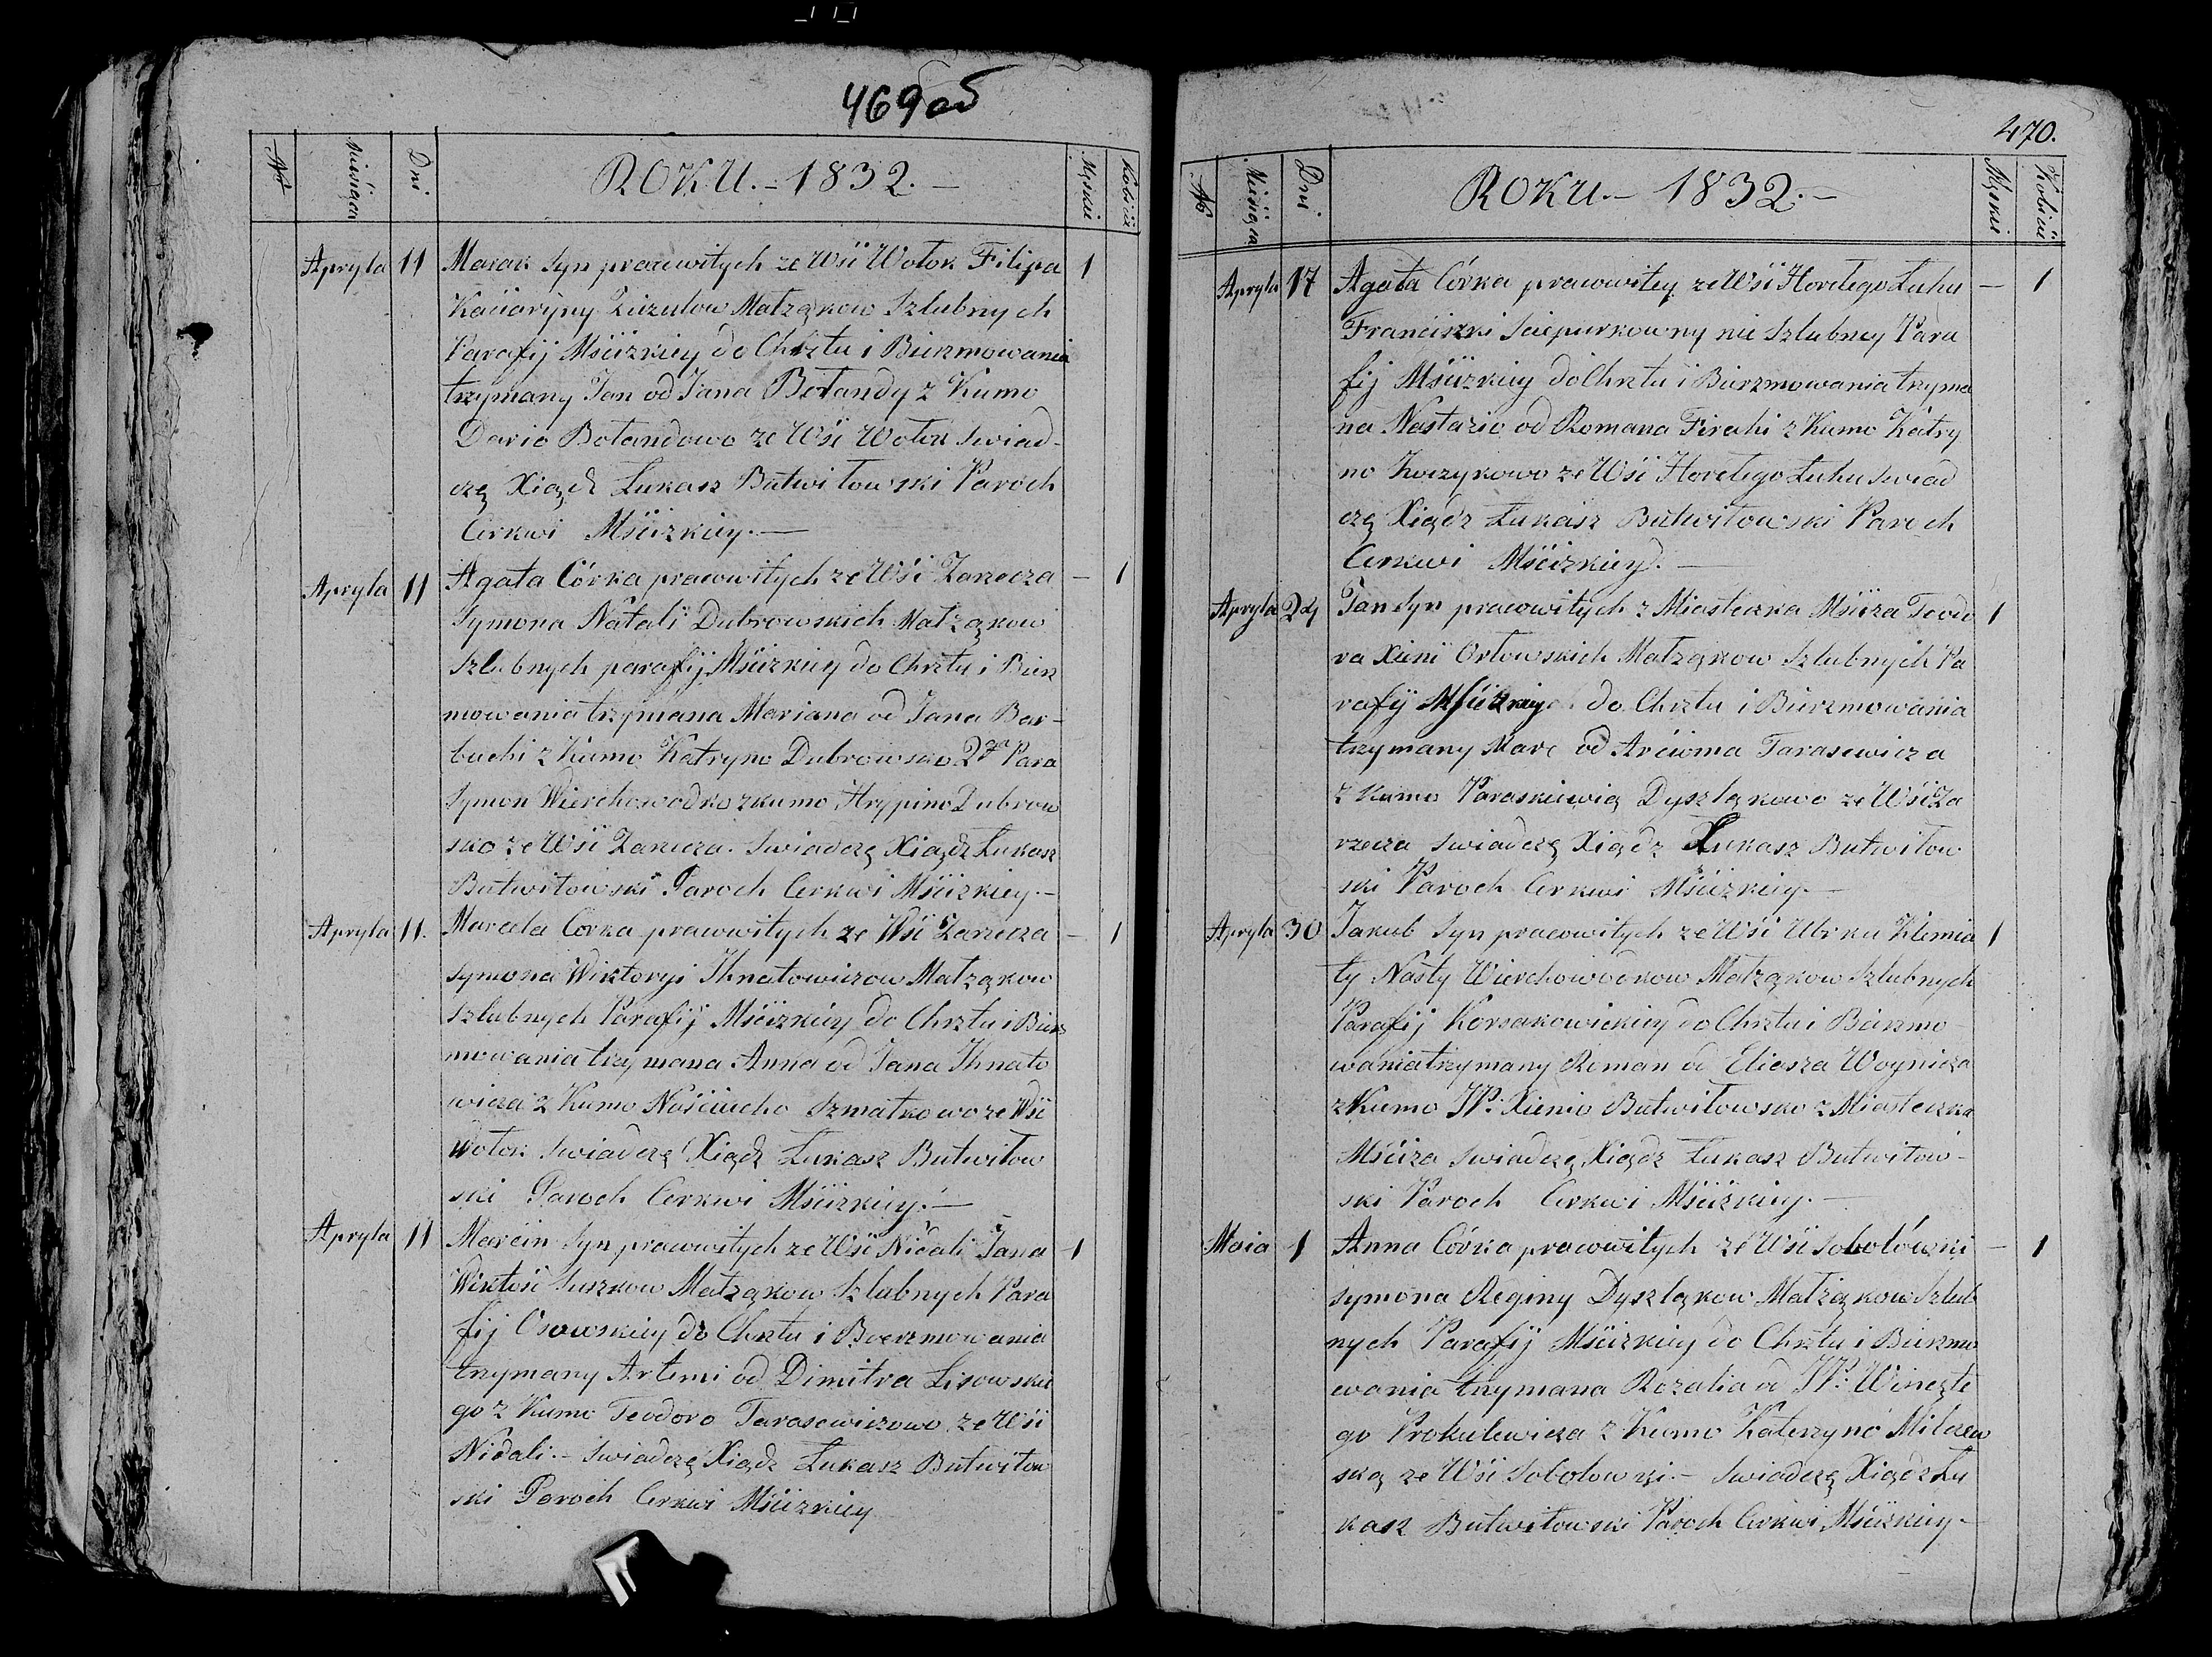 469об
№ Miesiąca Dni ROKU.-1832.- Męskie Kobiece
Apryla 11 Marak Syn pracowitych ze Wsi Wołok Filipa 1
Kaciaryny Ziuzulow Małżąkow Szlubnych
Parafij Mścizkiey do Chrztu i Bierzmowania
trzymany Jan od Jana Bołandy z Kumo
Dario Bołandowo ze Wsi Wołok Swiad-
czę Xiądz Łukasz Butwiłowski Paroch
Cerkwi Mścizkiey.—
Apryla 11 Agata Córka pracowitych ze Wsi Zarzecza — 1
Symona Natali Dubrowskich Małżąkow
Szlubnych parafij Mścizkiey do Chrztu i Bierz
mowania trzymana Mariana od Jana Bar-
buchi z Kumo Katryno Dubrowsko 2ga Para
Symon Wierchowodko z kumo Hrypino Dubrow
sko ze Wsi Zarzecza. Swiadczę Xiądz Łukasz
Butwiłowski Paroch Cerkwi Mścizkiey.—
Apryla 11. Marcela Corka pracowitych ze Wsi Zarzecza — 1
Symona Wiktoryi Ihnatowiczow Małżąkow
Szlubnych Parafij Mścizkiey do Chrztu i Bierz
mowania trzymana Anna od Jana Ihnato
wicza z Kumo Naściucho Szmatkowo ze Wsi
Wołok Swiadczę Xiądz Łukasz Butwiłow
ski Paroch Cerkwi Mścizkiey.—
Apryla 11 Marcin Syn pracowitych ze Wsi Nidali Jana 1
Wiktosi Suszkow Małżąkow Szlubnych Para
fij Osowskiey do Chrztu i Bierzmowania
trzymany Artemi od Dimitra Lisowskie
go z Kumo Teodoro Tarasewiczowo ze Wsi
Nidali.- Swiadczę Xiądz Łukasz Butwiłow
ski Paroch Cerkwi Mścizkiey
470.
№ Miesiąca Dni ROKU.- 1832.- Męskie Kobiece
Apryla 17 Agata Córka pracowitey ze Wsi Horełego Łuhu — 1
Franciszki Sciepurkowny nie Szlubney Para
fij Mścizkiey do Chrztu i Bierzmowania trzyma
na Nastazio od Romana Firahi z Kumo Katry
no ze Wsi Horełego Łuhu Swiad
czę Xiądz Łukasz Butwiłowski Paroch
Cerkwi Mścizkiey.—
Apryla 24 Jan Syn pracowitych z Miasteczka Mściża Teodo 1
ra Xieni Orłowskich Małżąkow Szlubnych Pa
rafij Mścizkiey do Chrztu i Bierzmowania
trzymany Marc od Arcioma Tarasewicza
z Kumo Paraskiewią Dyszląkowo ze Wsi Za
rzecza Swiadczę Xiądz Łukasz Butwiłow
ski Paroch Cerkwi Mścizkiey.—
Apryla 30 Jakub Syn pracowitych ze Wsi Ubrku Klemia 1
ty Nasty Wierchowodkow Małżąkow Szlubnych
Parafij Korsakowickiey do Chrztu i Bierzmo
wania trzymany Roman od Eliasza Woynicza
z Kumo JP. Xienio Butwiłowsko z Miasteczka
Mściża Swiadczę Xiądz Łukasz Butwiłow-
ski Paroch Cerkwi Mścizkiey.—
Maia 1 Anna Córka pracowitych ze Wsi Sobolówski — 1
Symona Reginy Dyszląkow Małżąkow Szlub
nych Parafij Mścizkiey do Chrztu i Bierzmo
wania trzymana Rozalia od JP. Wincęte
go Prokulewicza z Kumo Katerzyno Milaew
ską ze Wsi Sobolowki.- Swiadczę Xiądz Łu
kasz Butwiłowski Paroch Cerkwi Mścizkiey.-